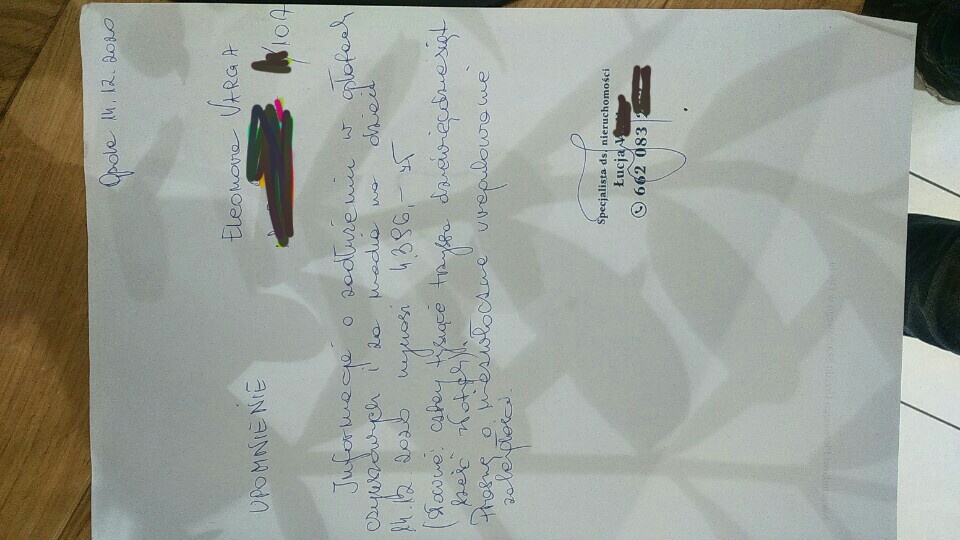 Opole 14.12.2020
Eleonora VARGA
/10A
UPOMNIENIE
Informację o zadłużeniu w opłatach
czynszowych i za media na dzień
14.12 2020 wynosi 4.396,- zł
(słownie: cztery tysiące trzysta dziewięćdziesiąt
sześć złotych).
Proszę o niezwłoczne uregulowanie
zaległości.
Specjalista ds. nieruchomości
Łucja
662 083